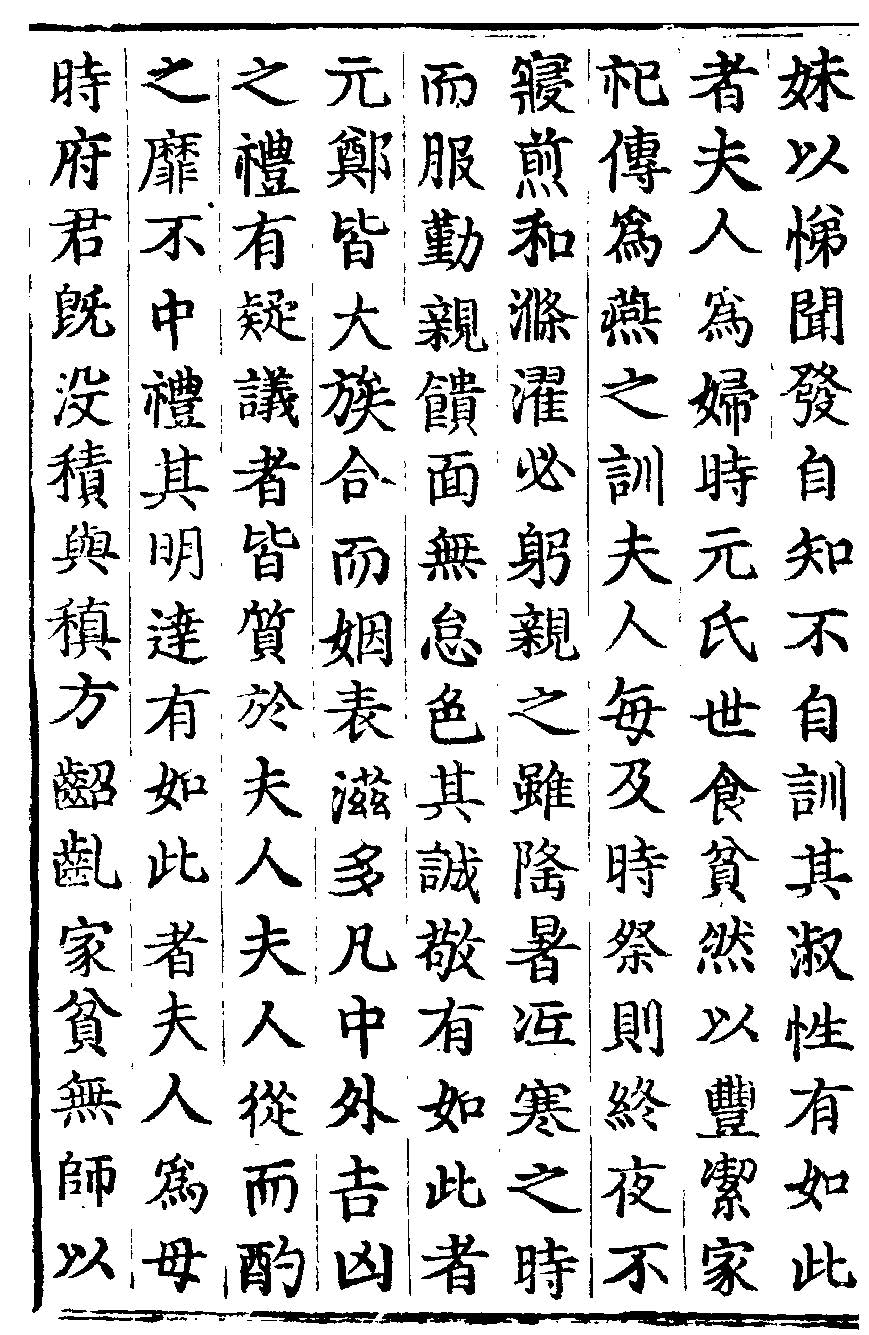 妹以悌聞發自知不自訓其淑性有如此
者夫人為婦時元氏世食貧然以豐潔家
祀傳為燕之訓夫人每及時祭則終夜不
寢煎和滌濯必躬親之雖隆暑沍寒之時
而服勤親饋面無怠色其誠敬有如此者
元鄭皆大族合而姻表滋多凡中外吉凶
之禮有疑議者皆質於夫人夫人從而酌
之靡不中禮其明達有如此者夫人為母
時府君既没積與稹方齠齓家貧無師以